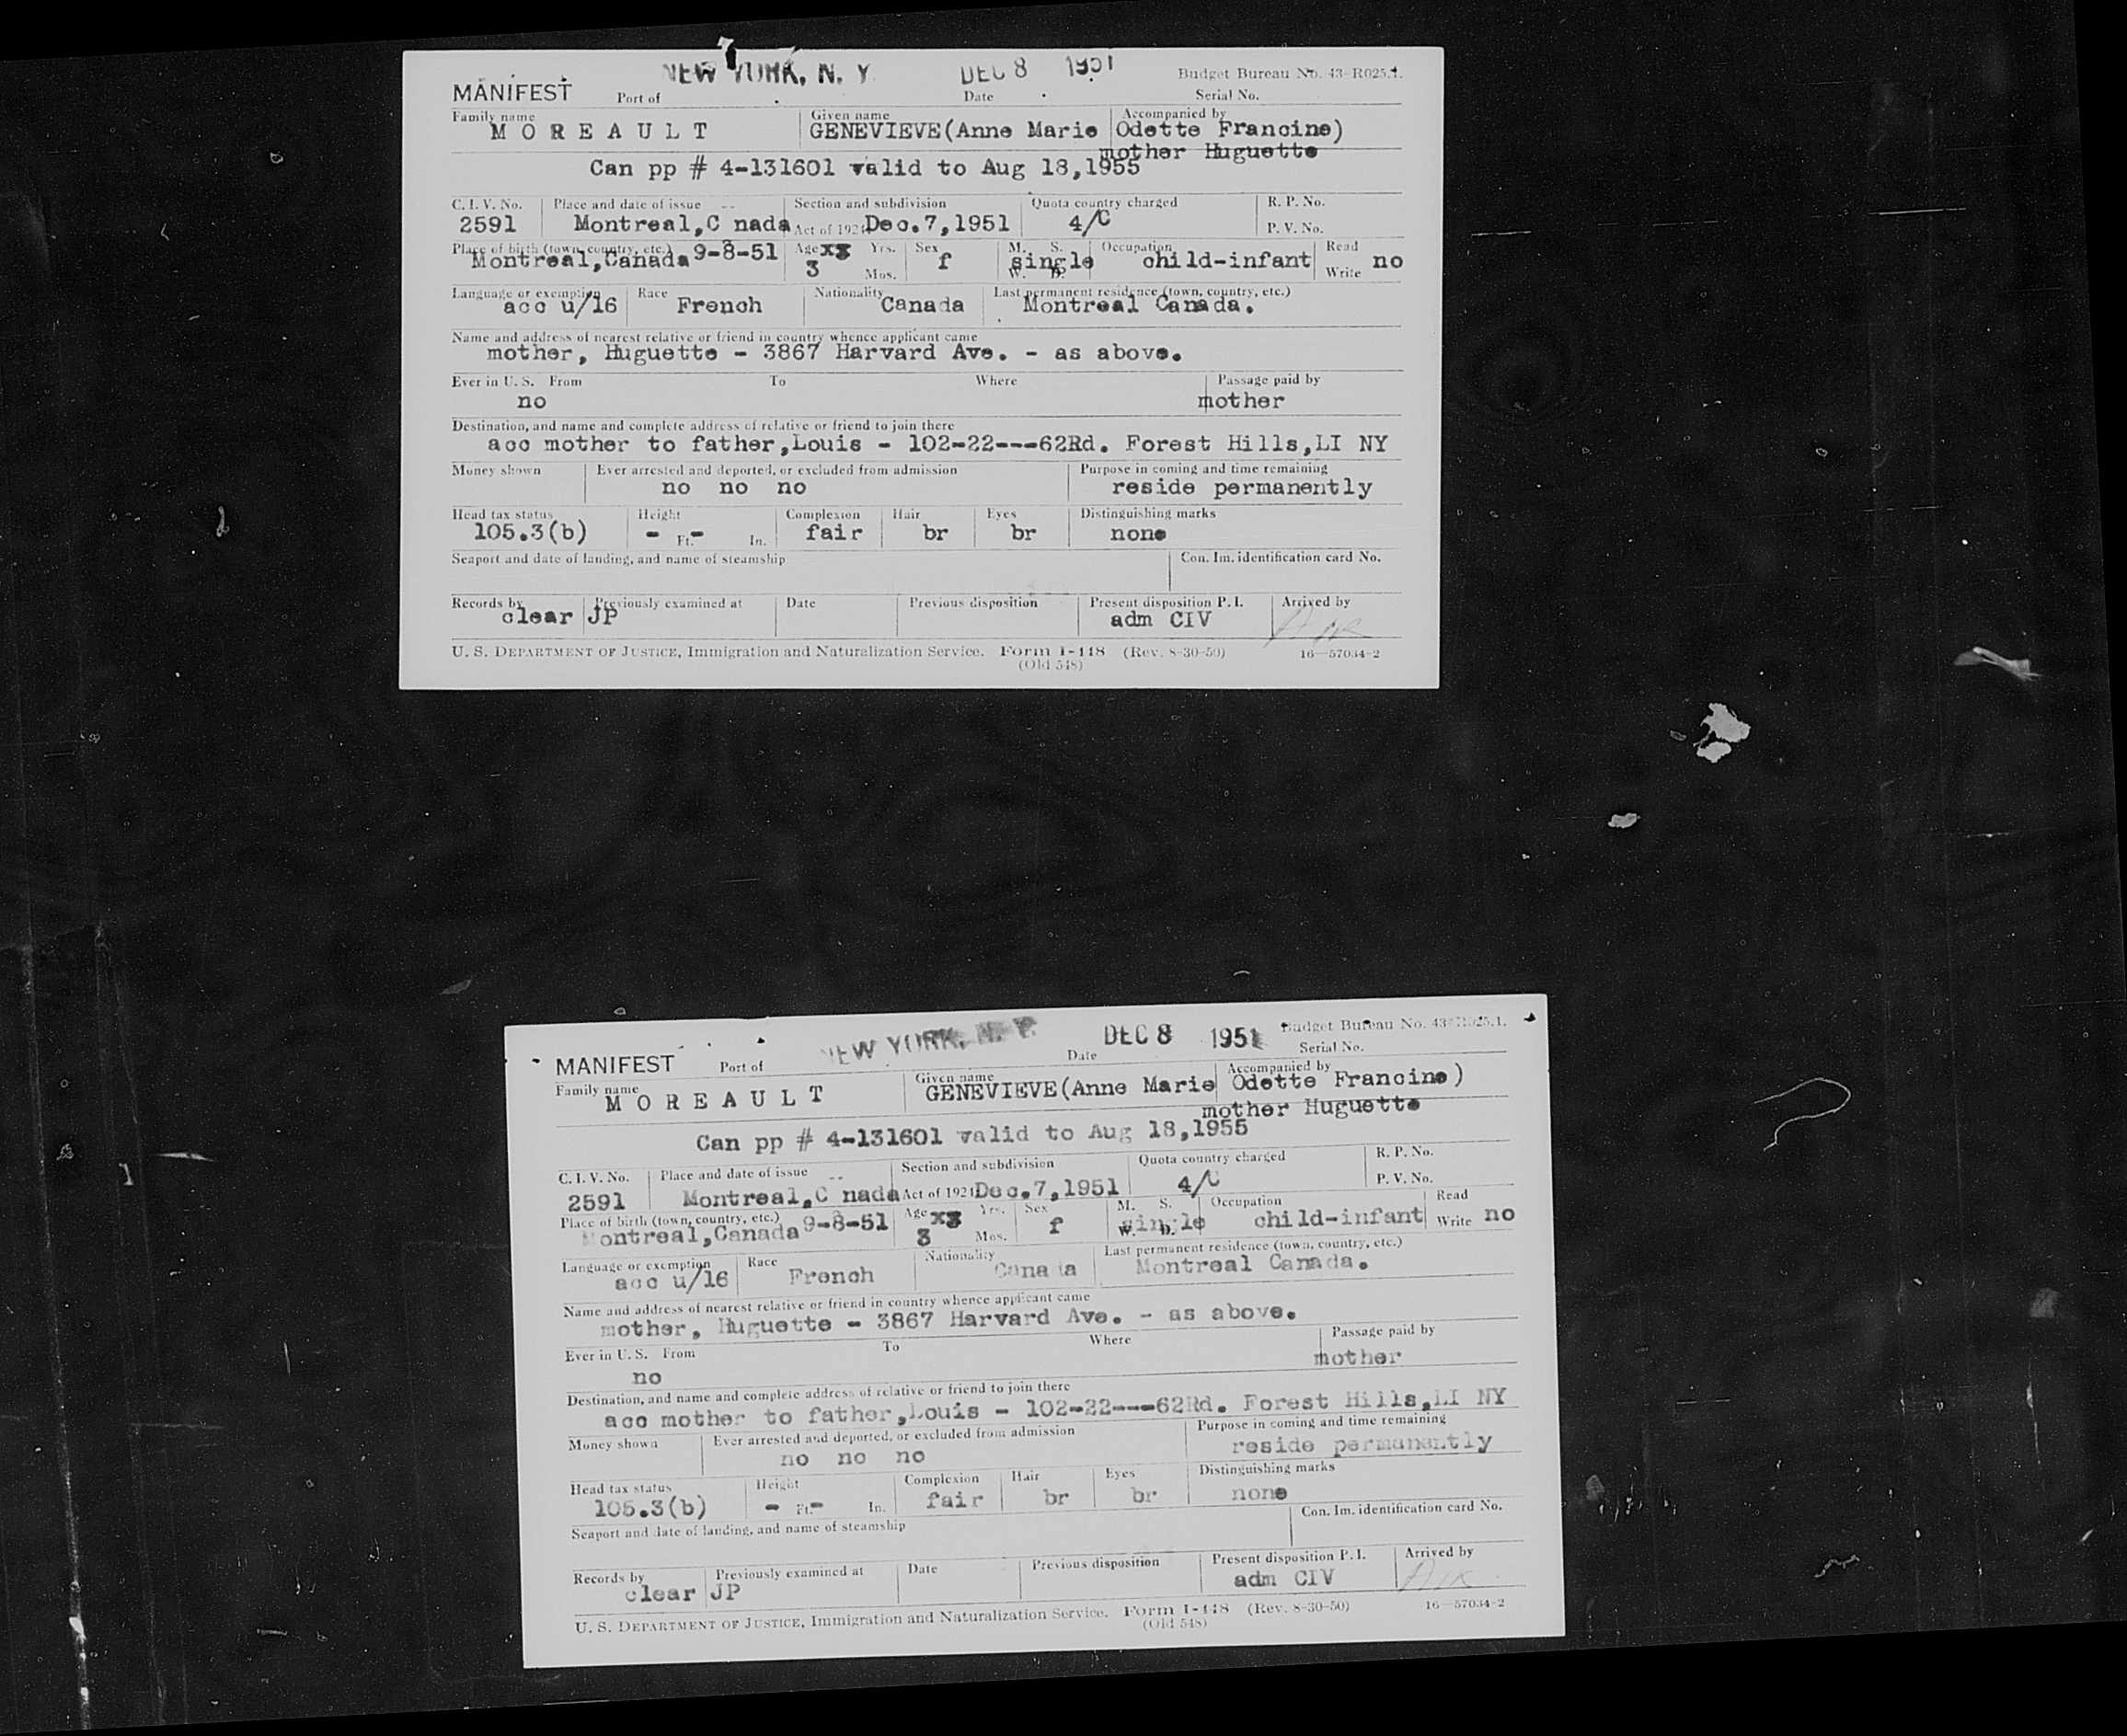 NEW YORK, N. Y. DEC 8 1951 Budget Bureau No. 43-R025.1.
MANIFEST Port of Date Serial No.
Family name Given name Accompanied by
MOREAULT GENEVIEVE(Anne Marie Odette Francine)
mother Huguette
Can pp # 4-131601 valid to Aug 18,1955
C. I. V. No. Place and date of issue -- Section and subdivision Quota country charged R. P. No.
2591 Montreal,C nada Act of 1924 Dec.7,1951 4/C P. V. No.
Place of birth (town, country, etc.) 9-8-51 Age Yrs. Sex M. S. Occupation Read
Montreal,Canada 3 Mos. f single W. D. child-infant Write no
Language or exemption Race Nationality Last permanent residence (town, country, etc.)
acc u/16 French Canada Montreal Canada.
Name and address of nearest relative or friend in country whence applicant came
mother, Huguette - 3867 Harvard Ave. - as above.
Ever in U. S. From To Where Passage paid by
no mother
Destination, and name and complete address of relative or friend to join there
acc mother to father,Louis - 102-22---62Rd. Forest Hills,LI NY
Money shown Ever arrested and deported, or excluded from admission Purpose in coming and time remaining
no no no reside permanently
Head tax status Height Complexion Hair Eyes Distinguishing marks
105.3(b) - Ft.- In. fair br br none
Seaport and date of landing, and name of steamship Con. Im. identification card No.
Records by Previously examined at Date Previous disposition Present disposition P. I. Arrived by
clear JP adm CIV
U. S. DEPARTMENT OF JUSTICE, Immigration and Naturalization Service. Form I-448 (Rev. 8-30-50) 16—57034-2
(Old 548)
NEW YORK, N. Y. DEC 8 1951 Budget Bureau No. 43-R025.1.
MANIFEST Port of Date Serial No.
Family name Given name Accompanied by
MOREAULT GENEVIEVE(Anne Marie Odette Francine)
mother Huguette
Can pp # 4-131601 valid to Aug 18,1955
C. I. V. No. Place and date of issue -- Section and subdivision Quota country charged R. P. No.
2591 Montreal,C nada Act of 1924 Dec.7,1951 4/C P. V. No.
Place of birth (town, country, etc.) 9-8-51 Age Yrs. Sex M. S. Occupation Read
Montreal,Canada 3 Mos. f single W. D. child-infant Write no
Language or exemption Race Nationality Last permanent residence (town, country, etc.)
acc u/16 French Canada Montreal Canada.
Name and address of nearest relative or friend in country whence applicant came
mother, Huguette - 3867 Harvard Ave. - as above.
Ever in U. S. From To Where Passage paid by
no mother
Destination, and name and complete address of relative or friend to join there
acc mother to father,Louis - 102-22---62Rd. Forest Hills,LI NY
Money shown Ever arrested and deported, or excluded from admission Purpose in coming and time remaining
no no no reside permanently
Head tax status Height Complexion Hair Eyes Distinguishing marks
105.3(b) - Ft.- In. fair br br none
Seaport and date of landing, and name of steamship Con. Im. identification card No.
Records by Previously examined at Date Previous disposition Present disposition P. I. Arrived by
clear JP adm CIV
U. S. DEPARTMENT OF JUSTICE, Immigration and Naturalization Service. Form I-448 (Rev. 8-30-50) 16—57034-2
(Old 548)